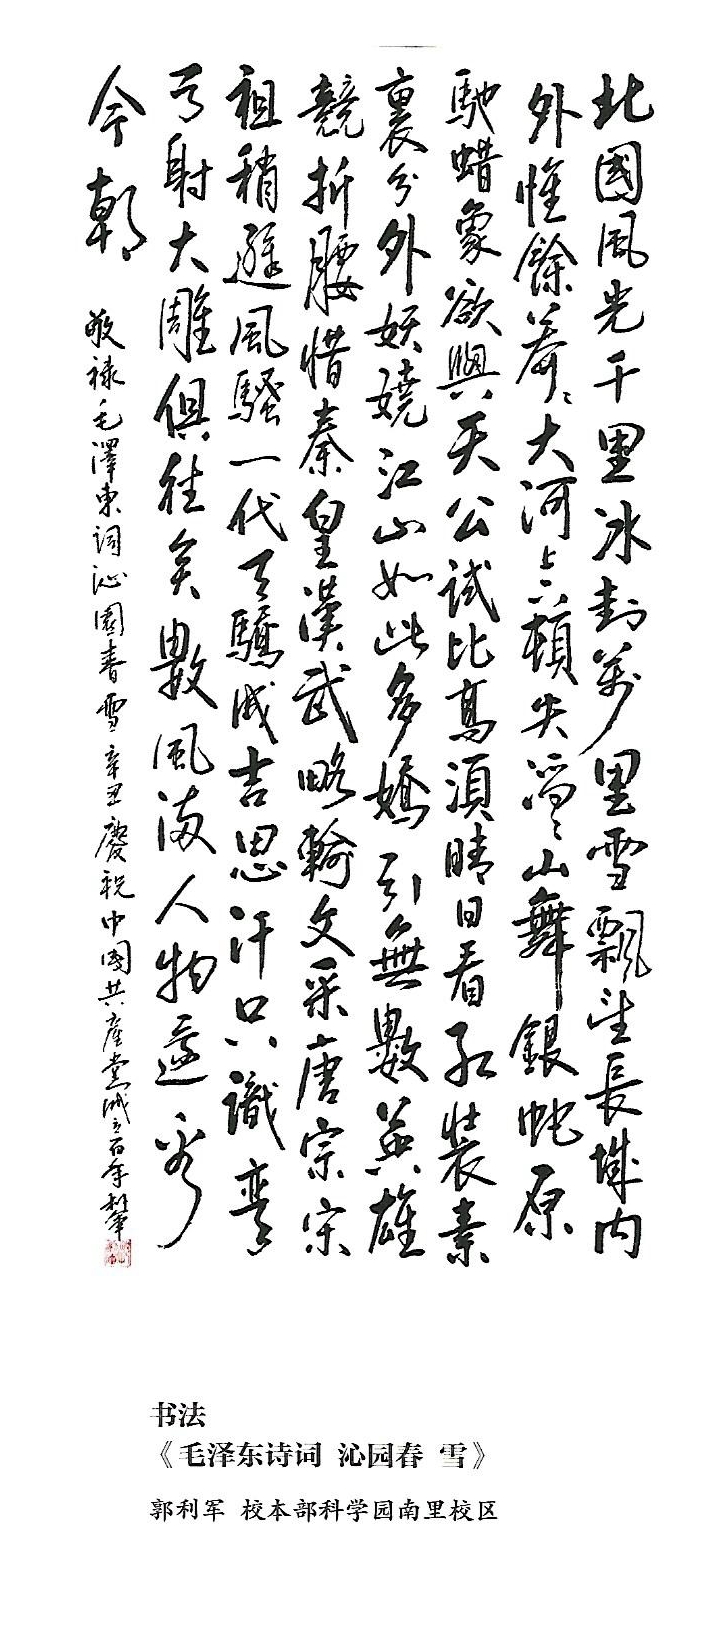 北國風光千里冰封萬里雪飄望長城内
外惟餘莽〻大河上下頓失滔〻山舞銀蛇原
馳蜡象欲與天公試比高須晴日看紅裝素
裹分外妖嬈江山如此多嬌引無數英雄
競折腰惜秦皇漢武略輸文采唐宗宋
祖稍遜風騷一代天驕成吉思汗只識彎
弓射大雕俱往矣數風流人物還看
今朝
敬祿毛澤東詞沁園春雪辛丑慶祝中國共産黨成立百年
书法
《毛泽东诗词 沁园春 雪》
郭利军 校本部科学园南里校区